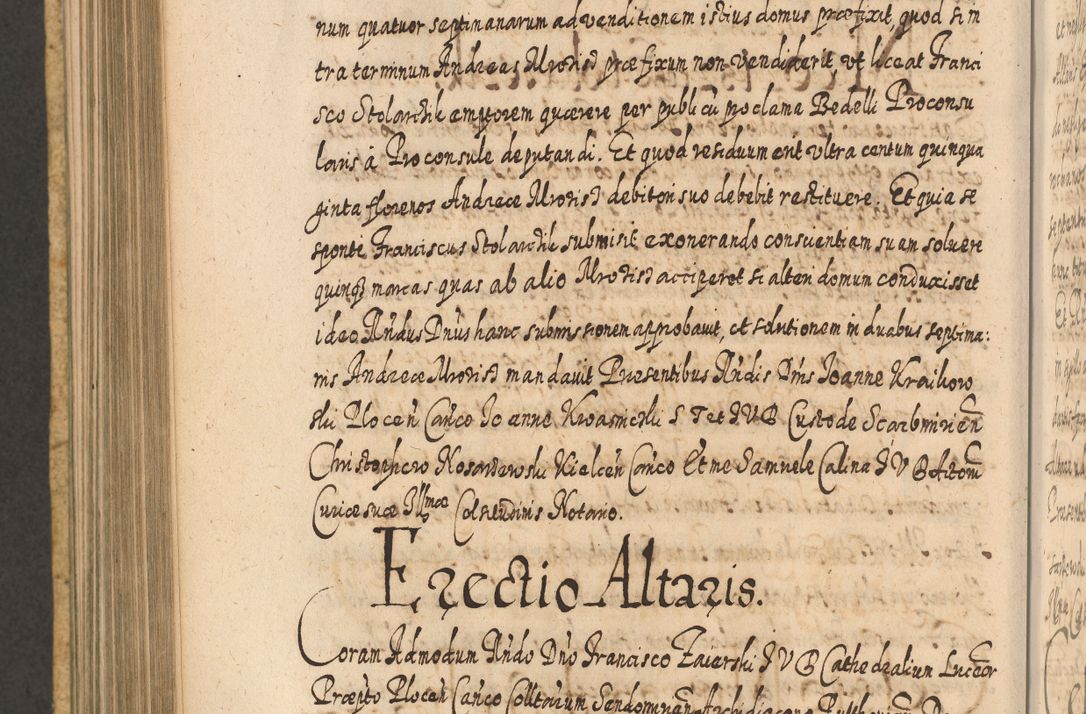 num quatuor septimanarum ad venditionem istius domus præfixit, quod si in
tra terminum Andreas Mrozisz præfixum non vendiderit, vt liceat Franci
sco Stolarczik emptorem quærere per publicũ proclama Bedelli Proconsu
laris à Proconsule deputandi. Et quod residuum erit vltra centum quinqua
ginta florenos Andreæ Mrozisz debitori suo debebit restituere. Et quia se
sponte Franciscus Stolarczik submisit exonerando conscientiam suam soluere
quinqȝ marcas quas ab alio Mrozisz acciperet si alteri domum conduxisset
ideo Rñdus Dñus hanc submissionem approbauit, et solutionem in duabus septima:
nis Andreæ Mrozisz mandauit Præsentibus Rñdis Dñis Joanne Kraikow
ski Plocen̄ Can̄co Joanne Kwasnicki S T et J V D Custode Scarbimirien̄
Christophoro Kosarzewski Kielcen̄ Can̄co Et me Samuele Calina J V D Actorũ
Curiæ suæ Illmæ Celsitudinis Notario.
Erectio Altaris.
Coram Admodum Rñdo Dño Francisco Zaierski J V D Cathedralium Luceor
Præpto Plocen̄ Can̄co Colltarum Sendomirien̄ Archidiacono